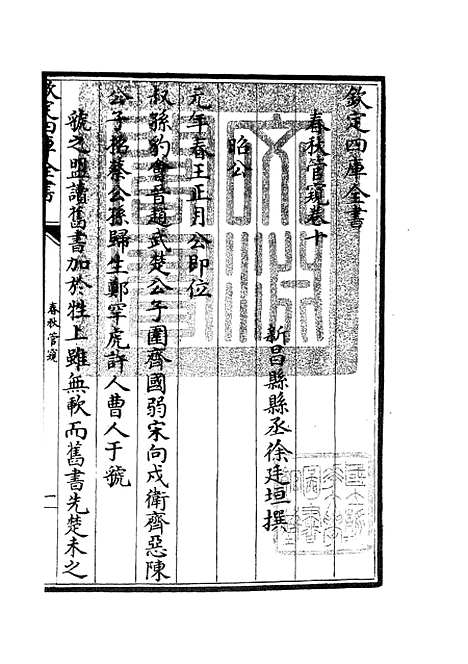 欽定四庫全書
春秋管窺卷十
新昌縣縣丞徐廷垣撰
昭公
元年春王正月公即位
叔孫豹會晉趙武楚公子圍齊國弱宋向戌衛齊惡陳
公子招蔡公孫歸生鄭罕虎許人曹人于虢
虢之盟讀舊書加於牲上雖無歃而舊書先楚未之
欽定四庫全書
春秋管窺
一